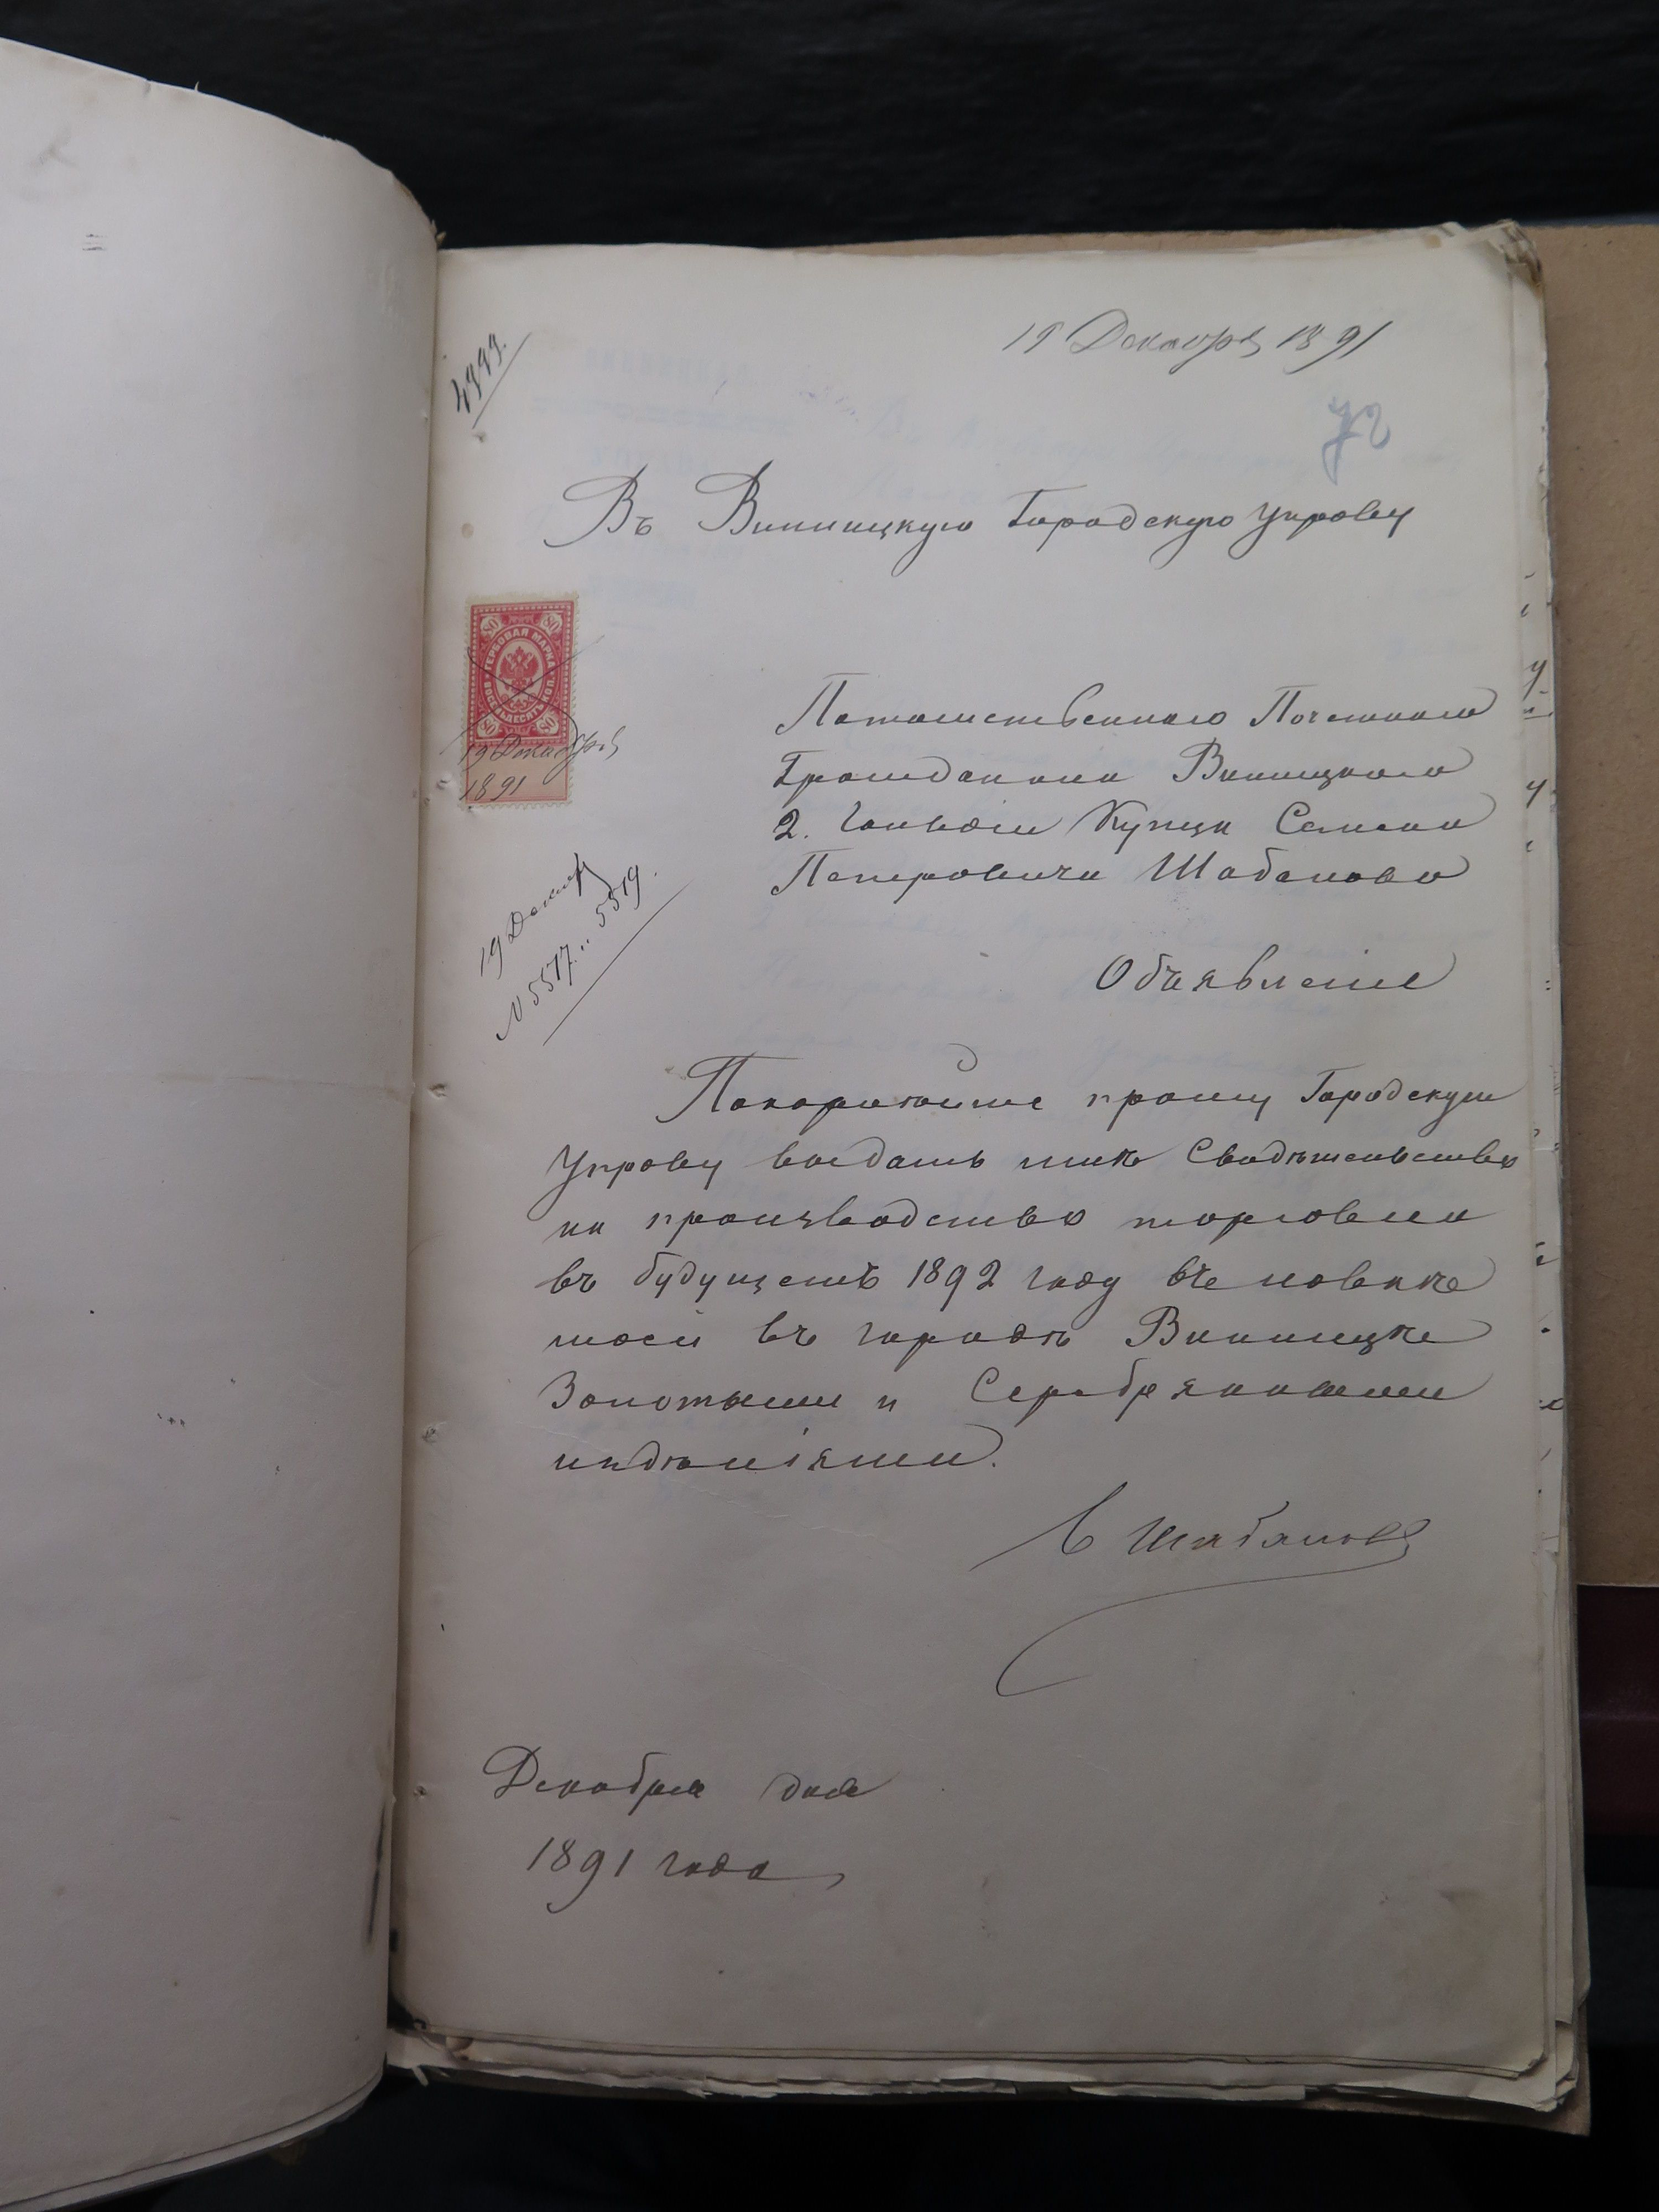 19 Декабря 1891
4999.
72
Въ Винницкую Городскую Управу
80 80
ГЕРБОВАЯ МАРКА
ВОСЕМЬДЕСЯТЪ КОП.
80 80
19 Декабря
1891
Потомственнаго Почетнаго
Гражданина Винницкаго
2. Гильдіи Купца Семена
Петровича Шабанова
19 Декабр
N 5517.. 5519.
Объявленіе
Покорнѣйше прошу Городскую
Управу выдать мнѣ Свидѣтельство
на производство торговли
въ будущемъ 1892 году въ лавкѣ
моей въ городѣ Винницѣ
Золотыми и Серебряными
издѣліями.
С Шабановъ
Декабря дня
1891 года